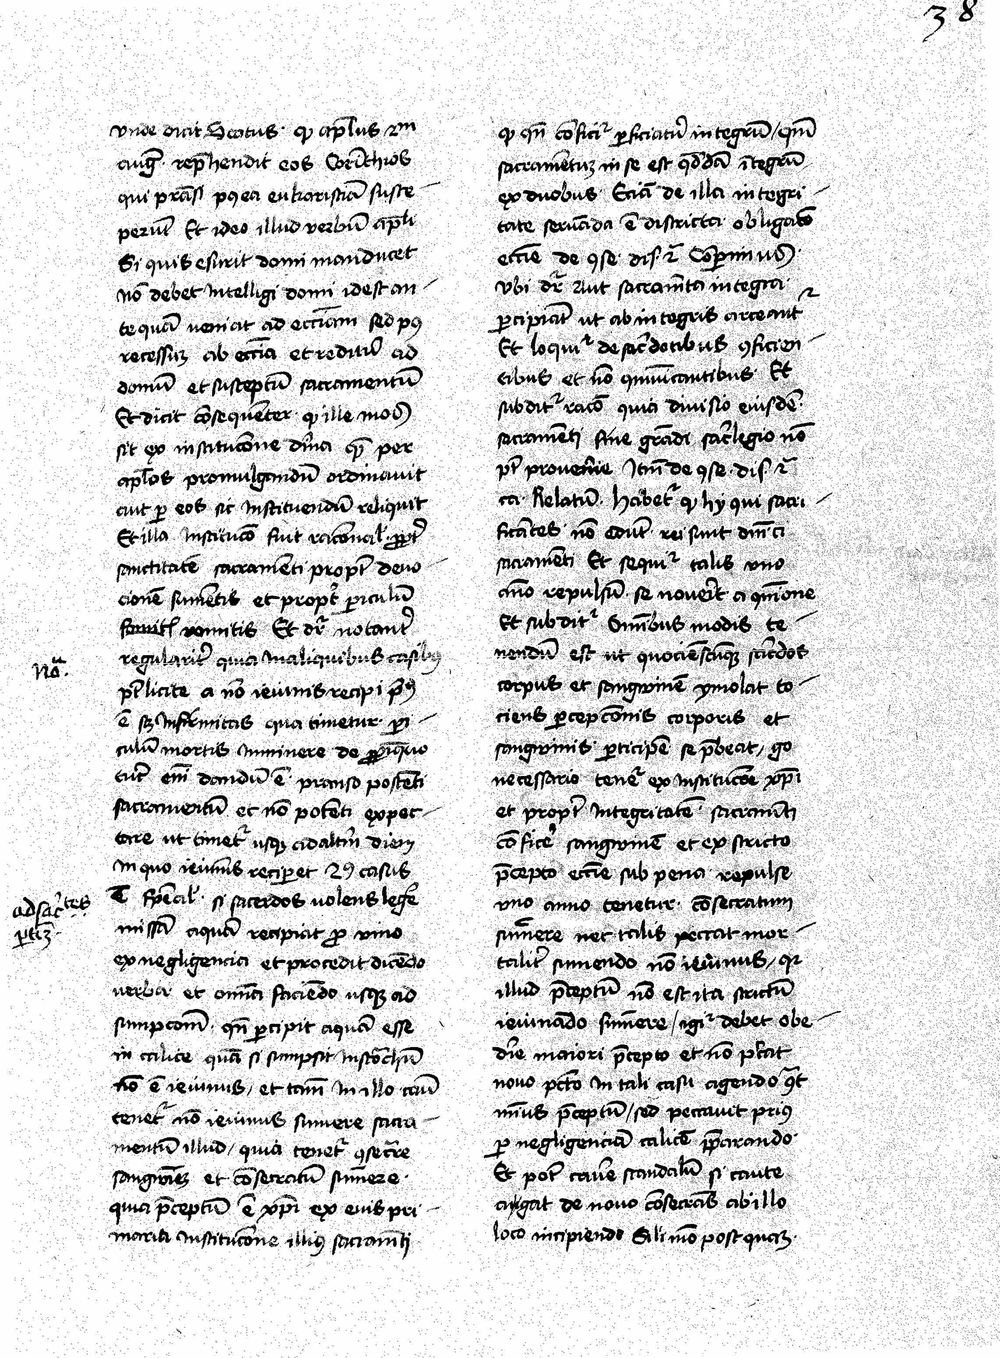 38
vnde dicit Scotus · qƺ apl̄us 2m
auḡ · rep̄hendit eos Corīthios
qui prāsi pꝰ ea eukaristiā susce-
perūt Et ideo illud verbū apl̄i
Si quis esurit domi manducet
nō debet intelligi domi idest an-
te quā veniat ad eccīam sed pꝰ
recessuȝ ab eccīa et rediturū ad
domū et susceptū sacramentū
Et dicit cōsequēter · qƺ ille modꝰ
sit ex institucōne dīna qā per
apl̄os promulgandū ordinauit
aut ꝑ eos sic instituendū reliquit
Et illa institucō fuit racōnal̄ · ꝓpt̄
sanctitatē sacramēti propt̄ deuo
cionē sumētis et propt̄ ꝑiculū
vomitis Et dr̄ notant̄
regularit̄ quia in aliquibus casibꝰ
pt̄ licite a nō ieiunis recipi p̄mꝰ
ē sȝ infirmitas qua timetur · ꝑi-
culū mortis iminere de ꝓpīquo
tūc enī dandū ē · pranso potēti
sacramentū et nō potēti expec-
tare ut timet᷑ usqȝ ad alt̄m diem
in quo ieiunꝰ reciperet 2ꝰ casus
ē sp̄eal̄ · si sacerdos volens lege᷑
missā aquā recipiat ꝓ vino
ex negligencia et procedit dicēdo
verba et omīa faciēdo usqȝ ad
sumpcōm̄ · qn̄ ꝑcipit aquā esse
in calice quā si sumpsit in stōachū
nō ē ieiunus, et tam̄ in illo casu
tenet᷑ nō ieiunus sumere sacra-
mentū illud, quia tenet᷑ ꝯsecr̄re
sangwinē et cōsecratū sumere ·
quia p̄ceptū ē xp̄i ex eius pri-
maria institucōne illiꝰ sacramēti
Nōa ·
ad sac̄tes
ꝑtȝ ·
qƺ qn̄ cōficit᷑ ꝑficiat᷑ integrū, qm̄
sacramētuȝ in se est qd̄dā ītegrū
ex duobus Eciā de illa integri-
tate seruāda ē districta obligacō
eccīe de ꝯse · dis · 2 Cōperimꝰ ·
vbi dr̄ Aut sacramēta integra ·
ꝑcipiāt ut ab integris arceant᷑
Et loquit᷑ de sac̄dotibus ꝯficien-
tibus et nō cōmūicantibus · Et
subdit᷑ racō quia diuisio eiusdē ·
sacramēti sine grādi sac̄legio nō
pt̄ prouenire Itm̄ de ꝯse · dis · 2
ca · Relatū · habet᷑ qƺ hy qui sacri-
ficātes nō edūt · rei sunt dn̄ici
sacramēti Et sequit᷑ talis vno
āno repulsū · se nouerit a cōmunione
Et subdit᷑ Omībus modis te-
nendū est ut quociēscūqȝ sac̄dos
corpus et sangwinē ymolat to-
ciens ꝑcepcōnis corporis et
sangwinis ꝑticipē se p̄beat, go
necessario tenet᷑ ex institucōne xp̄i
et propt̄ integritatē sacramēti
cōfice᷑ sangwinē et ex stricto
p̄cepto eccīe sub pena repulse
vno anno tenetur · cōsecratum
sumere nec talis peccat mor-
talit̄ sumendo nō ieiunus, qr
illud p̄ceptū nō est ita strictū
ieiunādo sumere, igit᷑ debet obe-
dire maiori p̄cepto et nō pec̄cat
nouo pctō in tali casu agendo cōt᷑
minꝰ p̄ceptū, sed peccauit priꝰ
ꝑ negligenciā calicē p̄parando ·
Et pot̄ cauere scandalū si caute
agat de nouo cōsecrās ab illo
loco incipiendo Sili mō postquaȝ ·